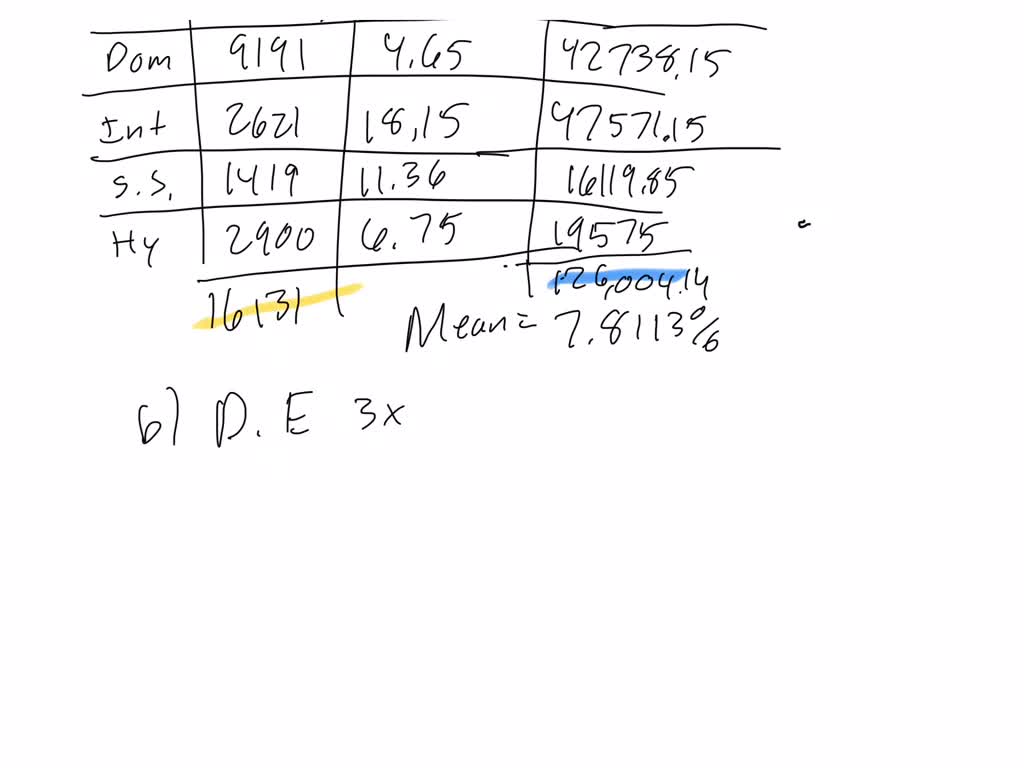 Dom 9191 4.65 42738.15
Int 2621 18,15 47571.15
S.S. 1419 11.36 16119.85
Hy 2900 6.75 19575
16131 126,004.14
Mean= 7.8113%
b) D. E 3x